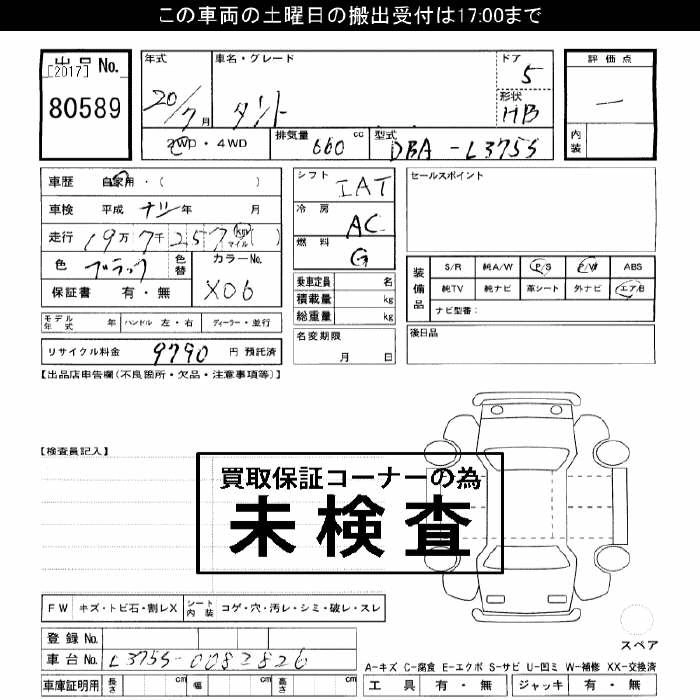 この車両の土曜日の搬出受付は17:00まで
出品 No.
[2017]
80589
年式
20/7 月
車名・グレード
タント
ドア
5
形状
HB
2WD・4WD
排気量 660 cc
型式 DBA-L375S
評価点
—
内装
車歴 自家用・( )
車検 平成 ナシ 年 月
走行 19万7千257 km マイル ( )
色 ブラック 色替
カラーNo.
X06
保証書 有・無
シフト IAT
冷房 AC
燃料 G
乗車定員 名
積載量 kg
総重量 kg
セールスポイント
装備品
S/R 純A/W P/S P/W ABS
純TV 純ナビ 革シート 外ナビ エアB
ナビ型番:
モデル年式 年 ハンドル 左・右 ディーラー・並行
リサイクル料金 9790 円 預託済
名変期限
月 日
後日品
【出品店申告欄(不良箇所・欠品・注意事項等)】
【検査員記入】
買取保証コーナーの為
未検査
FW キズ・トビ石・割レX シート内装 コゲ・穴・汚レ・シミ・破レ・スレ
スペア
登録 No.
車台 No. L375S-0082826
A-キズ C-腐食 E-エクボ S-サビ U-凹ミ W-補修 XX-交換済
車庫証明用 長さ cm 幅 cm 高さ cm
工具 有・無 ジャッキ 有・無